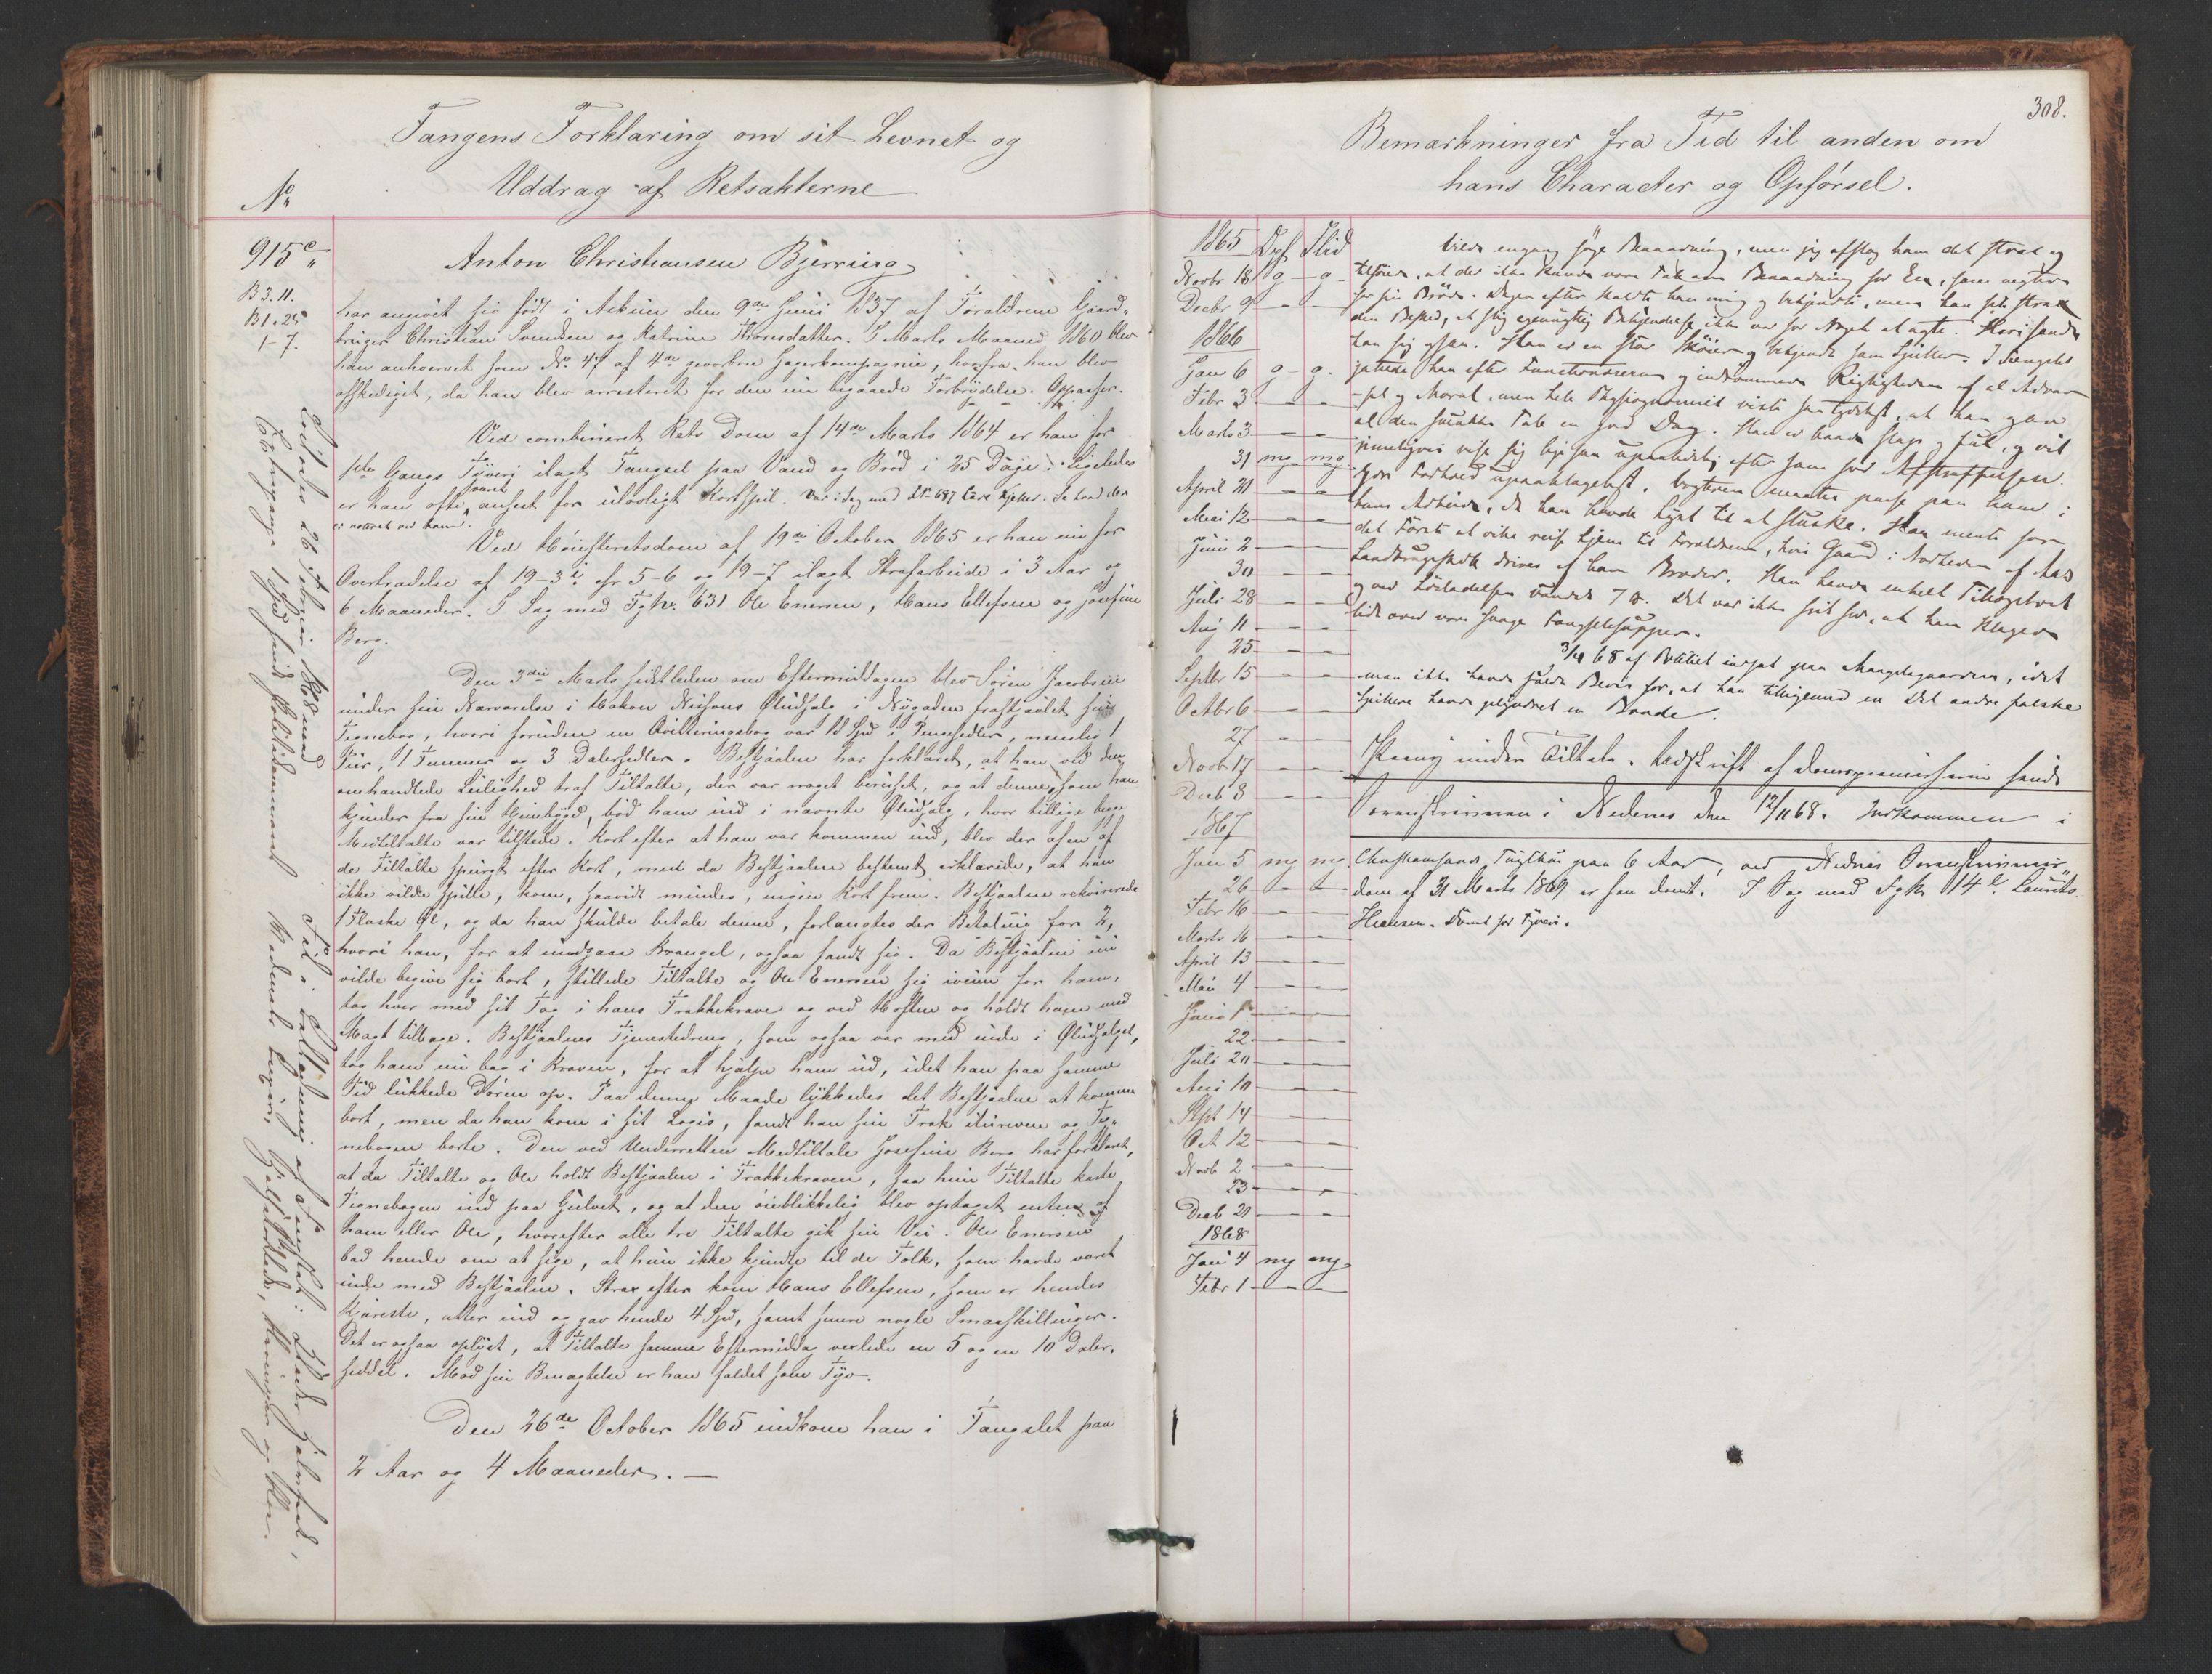 Fangens Forklaring om sit Levnet og
Uddrag af Retsakterne
No
915c
B 3. 11.
B 1. 25
1-7.
Anton Christiansen Bjerring
har angivet sig født i Askim den 9de Juni 1837 af Forældrene Gaard-
bruger Christian Svendsen og Katrine Thoresdatter. I Marts Maaned 1860 blev
han anhvervet som No 47 af 4de gevorbne Jægerkompagnie, hvorfra han blev
afskediget, da han blev arresteret for den nu begaaede Forbrydelse.
Ved combineret Rets Dom af 14de Marts 1864 er han for
1ste Gangs Tyveri ilagt Fængsel paa Vand og Brød i 25 Dage. Ligeledes
er han ofte været anseet for ulovligt Kortspil. Var i Sag med No 697
er noteret ved ham.
Ved Høiesteretsdom af 19de October 1865 er han nu for
Overtrædelse af 19-3 cfr 5-6 og 19-7 ilagt Strafarbeide i 3 Aar og
6 Maaneder. I Sag med Fg No 631 Ole Enersen, Hans Ellefsen og Josefine
Berg.
Den 3die Marts sidstleden om Eftermiddagen blev Søren Jacobsen
under sin Nærværelse i Hakon Nilsens Øludsalg i Nygaden frastjaalet sin
Tegnebog, hvori foruden en Qvitteringsbog var 18 Spd i Pengesedler, nemlig 1
Tier, 1 Femmer og 3 Dalersedler. Bestjaalne har forklaret, at han ved den
omhandlede Leilighed traf Tiltalte, der var noget beruset, og at denne, som han
kjender fra sin Heimbygd, bød ham ind i nævnte Øludsalg, hvor tillige begge
Medtiltalte var tilstede. Kort efter at han var kommen ind, blev der af en af
de Tiltalte spurgt efter Kort, men da Bestjaalne bestemt erklærede, at han
ikke vilde spille, kom, saavidt mindes, ingen Kort frem. Bestjaalne rekvirerede
1 Flaske Øl, og da han skulde betale denne, forlangtes der Betaling for 2,
hvori han, for at undgaae Krangel, ogsaa fandt sig. Da Bestjaalne nu
vilde begive sig bort, stillede Tiltalte og Ole Enersen sig iveien for ham,
tog hver med sit Tag i hans Frakkekrave og ved Hoften og holdt ham med
Magt tilbage. Bestjaalnes Tjenestedreng, som ogsaa var med inde i Øludsalget,
tog ham nu bag i Kraven, for at hjælpe ham ud, idet han paa samme
Tid lukkede Døren op. Paa denne Maade lykkedes det Bestjaalne at komme
bort, men da han kom i sit Logis, fandt han sin Frak iturevne og Teg-
nebogen borte. Den ved Underretten Medtiltale Josefine Berg har forklaret,
at da Tiltalte og Ole holdt Bestjaalne i Frakkekraven, saa hun Tiltalte kaste
Tegnebogen ind paa Gulvet, og at den øieblikkelig blev optaget enten af
ham eller Ole, hvorefter alle tre Tiltalte gik sin Vei. Ole Enersen
bad hende om at sige, at hun ikke kjendte til de Folk, som havde været
inde med Bestjaalne. Strax efter kom Hans Ellefsen, som er hendes
Kjæreste, atter ind og gav hende 4 Spd, samt senere nogle Smaaskillinger.
Det er ogsaa oplyst, at Tiltalte samme Eftermiddag vexlede en 5 og en 10 Daler-
seddel. Mod sin Benægtelse er han fældet som Tyv.
Den 26de October 1865 indkom han i Fængslet paa
2 Aar og 4 Maaneder. —
Løslades 26 Februar 1868 med
308.
Bemærkninger fra Tid til anden om
hans Character og Opførsel.
1865 Opf Flid
Novbr 18 g - g -
Decbr 9 - -
1866
Jan 6 g - g.
Febr 3 - -
Marts 3 - -
31 mg mg
April 21 - -
Mai 12 - -
Juni 2 - -
30 - -
Juli 28 - -
Aug 11 - -
25 - -
Septbr 15 - -
Octbr 6 - -
27 - -
Novbr 17 - -
Decb 8 - -
1867
Jan 5 mg mg
26 - -
Febr 16 - -
Marts 16 - -
April 13 - -
Mai 4 - -
Juni 1 - -
22 - -
Juli 20 - -
Aug 10 - -
Sept 14 - -
Oct 12 - -
Novb 2 - -
23 - -
Decb 21 - -
1868
Jan 4 mg mg
Febr 1 - -
Vilde engang søge Benaadning, men jeg afslog ham det strax og
tilføiede, at der ikke kunde være Tale om Benaadning for En, som negtede
for sin Brøde. Dagen efter kaldte han mig og bekjendte, men han fik strax
den Besked, at slig egennyttig Bekjendelse ikke var for Noget at agte. Heri fandt
han sig ogsaa. Han er en stor Skøier og bekjendt som Spiller. I Fængslet
jattede han efter Functionærerne og indrømmede Rigtigheden af al Advar-
sel og Moral, men hele Physiognomiet viste saa tydeligt, at han gav
al den smukke Tale en god Dag. Han er baade slap og ful, og vil
rimeligvis vise sig ligesaa upaalidelig efter som før Afstraffelsen.
hans Arbeide, da han havde Lyst til at sluske. Han mente for
det Første at ville reise hjem til Forældrene, hvis Gaard i Nordheden af Aas
Landbrugsskole drives af hans Broder. Han havde enkelt Tillægskost
og ved Løsladelsen vundet 7 ℔. Det var ikke frit for, at han klagede
lidt over vore svage Fangesupper.
3/11 68 af Politiet indsat paa Mangelsgaarden, idet
man ikke havde fulde Bevis for, at han tilligemed en Del andre falske
Spillere havde plyndret en Bonde.
Paany under Tiltale. Udskrift af Domsprotocollen sendt
Sorenskriveren i Nedenes den 12/11 68. Indkommen i
Christianssands Tugthus paa 6 Aar, ved Nedenes Sorenskriver-
dom af 31 Marts 1869 er han dømt. I Sag med Fg No 14 Laurits
Hansen. Dømt for Tyveri.